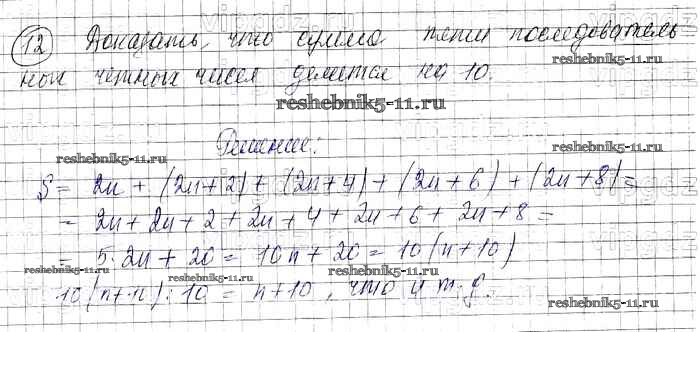 12 Доказать, что сумма пяти последователь
ных четных чисел делится на 10.
reshebnik5-11.ru
Решение:
reshebnik5-11.ru reshebnik5-11.ru
S = 2n + (2n + 2) + (2n + 4) + (2n + 6) + (2n + 8) =
= 2n + 2n + 2 + 2n + 4 + 2n + 6 + 2n + 8 =
= 5·2n + 20 = 10n + 20 = 10(n + 10)
reshebnik5-11.ru reshebnik5-11.ru
: 10 = n + 10, что и т.д.
reshebnik5-11.ru